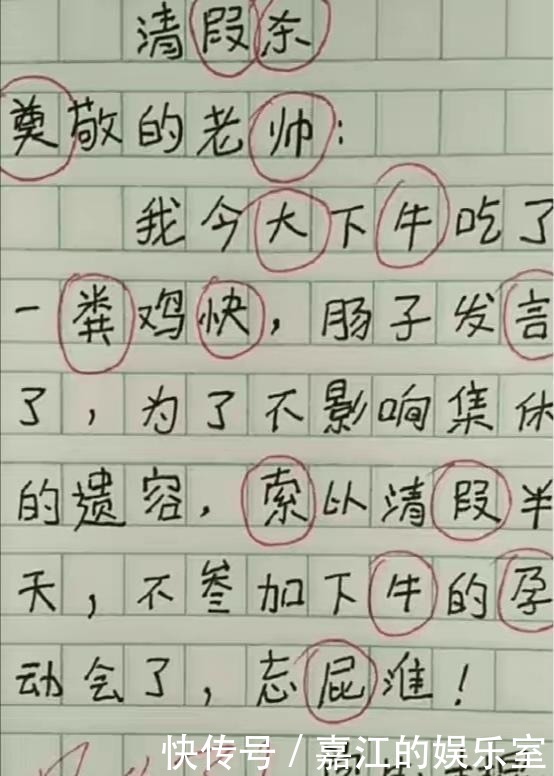 清叚杀
奠敬的老帅：
我今大下牛吃了
一粪鸡快，肠子发言
了，为了不影响集休
的遗容，索以清叚半
天，不参加下牛的孕
动会了，忘屁准！
快传号／嘉江的娱乐室